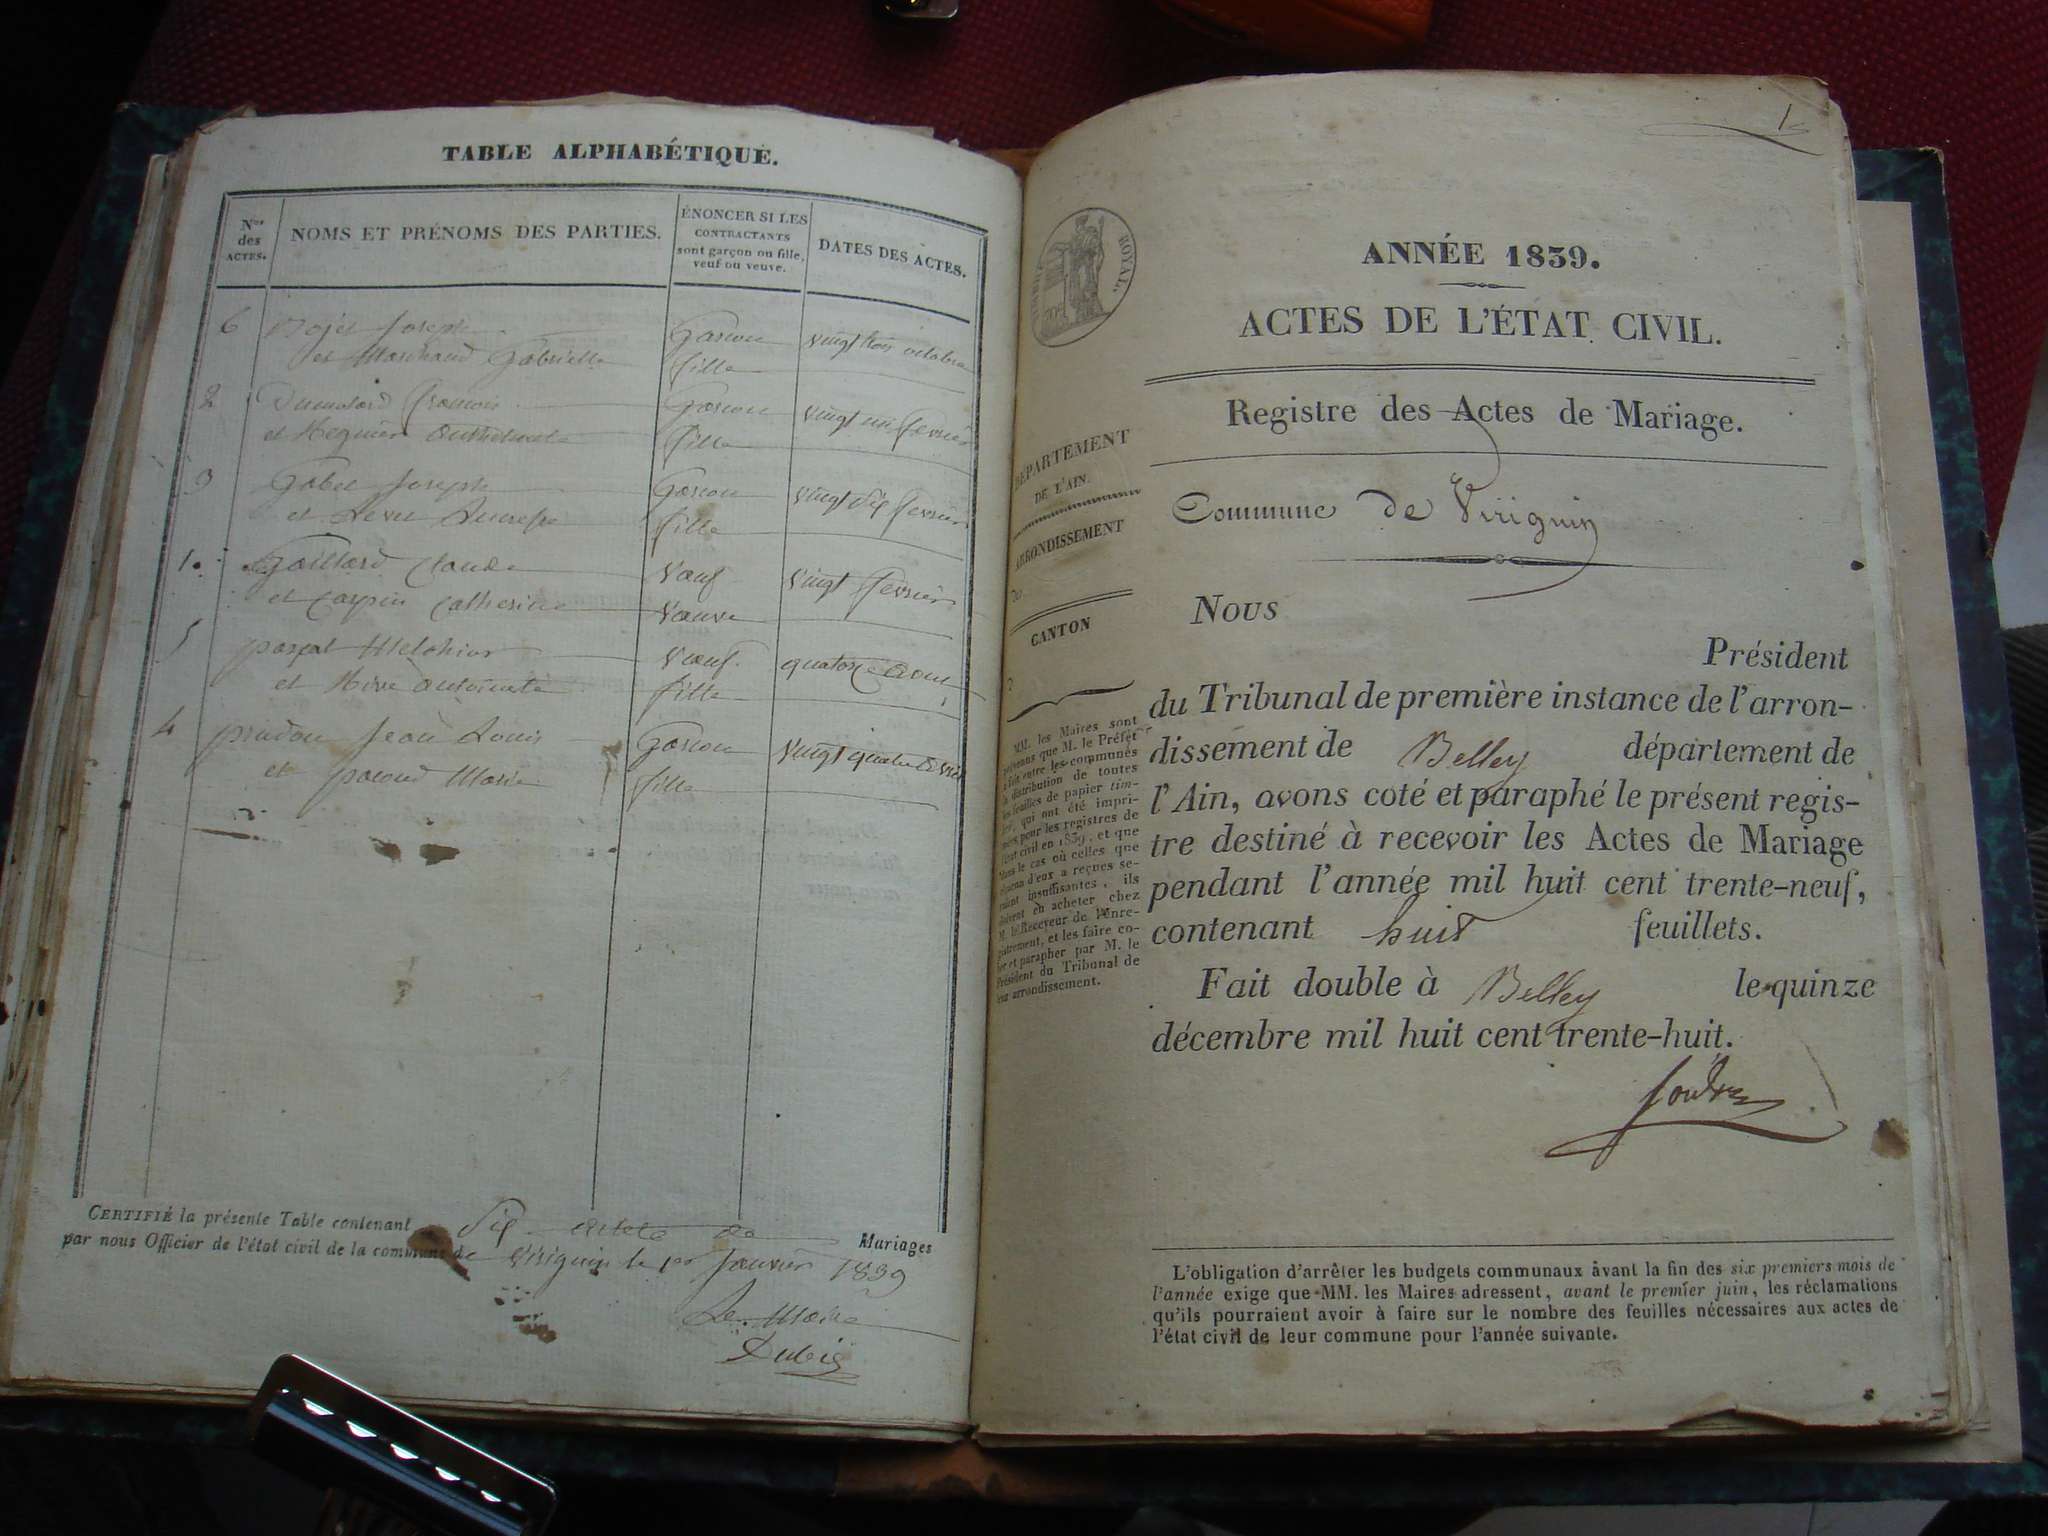 TABLE ALPHABÉTIQUE.
Nos des ACTES.
NOMS ET PRÉNOMS DES PARTIES.
ÉNONCER SI LES
CONTRACTANTS
sont garçon ou fille,
veuf ou veuve.
DATES DES ACTES.
6 Joseph Garcon vingt trois octobre
et Marchand Gabrielle fille
2 Dumolard francois Garcon vingt un fevrier
et fille
3 Gabet Joseph Garcon vingt Six fevrier
et fille
1. Gaillard Claude Vœuf vingt fevrier
et Catherine Vœuve
5 pascal Melchior Vœuf quatorze aout
et antoinete fille
4 Jean Louis Garcon vingt quatre
et Marie fille
CERTIFIÉ la présente Table contenant Six actes de Mariages
par nous Officier de l'état civil de la commune de Virignin le 1er Janvier 1839
Le Maire
1
ROYAL.
ANNÉE 1839.
ACTES DE L'ÉTAT CIVIL.
Registre des Actes de Mariage.
Commune de Virignin
DÉPARTEMENT
DE L'AIN.
ARRONDISSEMENT
CANTON
MM. les Maires sont
prévenus que M. le Préfet
a fait entre les communes
la distribution de toutes
les feuilles de papier tim-
bré, qui ont été impri-
mées pour les registres de
l'état civil en 1839, et que
dans le cas où celles que
chacun d'eux a reçues se-
raient insuffisantes, ils
doivent en acheter chez
M. le Receveur de l'enre-
gistrement, et les faire co-
ter et parapher par M. le
Président du Tribunal de
leur arrondissement.
Nous
Président
du Tribunal de première instance de l'arron-
dissement de Belley département de
l'Ain, avons coté et paraphé le présent regis-
tre destiné à recevoir les Actes de Mariage
pendant l'année mil huit cent trente-neuf,
contenant huit feuillets.
Fait double à Belley le quinze
décembre mil huit cent trente-huit.
L'obligation d'arrêter les budgets communaux avant la fin des six premiers mois de
l'année exige que MM. les Maires adressent, avant le premier juin, les réclamations
qu'ils pourraient avoir à faire sur le nombre des feuilles nécessaires aux actes de
l'état civil de leur commune pour l'année suivante.